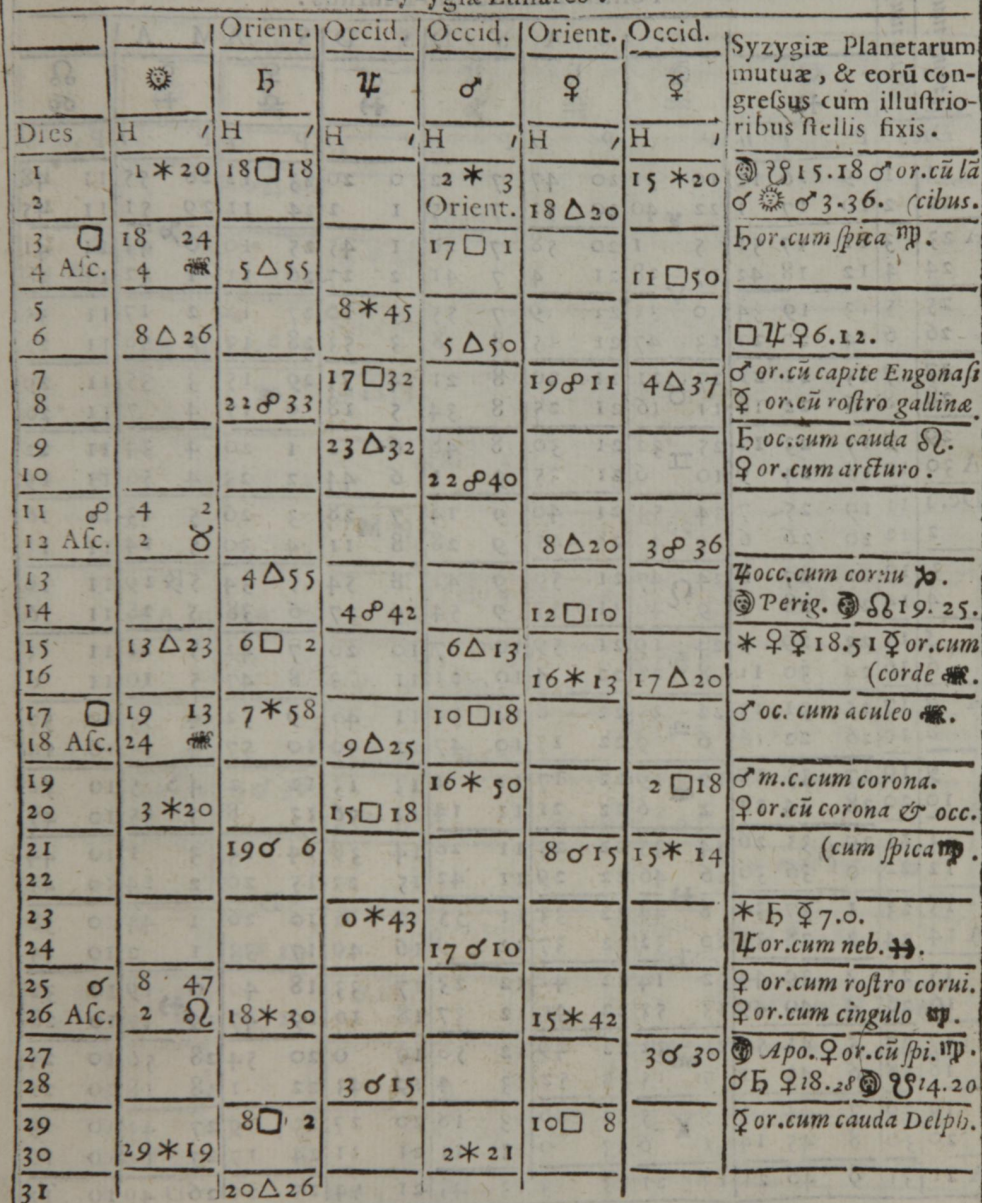 Orient. Occid. Occid. Orient. Occid.
☉ ♄ ♃ ♂ ♀ ☿
Syzygiæ Planetarum
mutuæ, & eorū con-
gressus cum illustrio-
ribus stellis fixis.
Dies H ′ H ′ H ′ H ′ H ′ H ′
1 1 ⚹ 20 18 □ 18 2 ⚹ 3 15 ⚹ 20 ☽ ☋ 15.18 ♂ or.cū lā
2 Orient. 18 △ 20 ☌ ☉ ♂ 3.36. (cibus.
3 □ 18 24 17 □ 1 ♄ or.cum spica ♍.
4 Asc. 4 ♏ 5 △ 55 11 □ 50
5 8 ⚹ 45
6 8 △ 26 5 △ 50 □ ♃ ♀ 6.12.
7 17 □ 32 19 ☍ 11 4 △ 37 ♂ or.cū capite Engonasi
8 22 ☍ 33 ☿ or.cū rostro gallinæ.
9 23 △ 32 ♄ oc.cum cauda ♌.
10 22 ☍ 40 ♀ or.cum arcturo.
11 ☍ 4 2
12 Asc. 2 ♉ 8 △ 20 3 ☍ 36
13 4 △ 55 ♃ occ.cum cornu ♑.
14 4 ☍ 42 12 □ 10 ☽ Perig. ☽ ☊ 19.25.
15 13 △ 23 6 □ 2 6 △ 13 ⚹ ♀ ☿ 18.51 ☿ or.cum
16 16 ⚹ 13 17 △ 20 (corde ♏.
17 □ 19 13 7 ⚹ 58 10 □ 18 ♂ oc. cum aculeo ♏.
18 Asc. 24 ♏ 9 △ 25
19 16 ⚹ 50 2 □ 18 ♂ m.c.cum corona.
20 3 ⚹ 20 15 □ 18 ♀ or.cū corona & occ.
21 19 ☌ 6 8 ☌ 15 15 ⚹ 14 (cum spica ♍.
22
23 0 ⚹ 43 ⚹ ♄ ☿ 7.0.
24 17 ☌ 10 ♃ or.cum neb. ♐.
25 ☌ 8 47 ♀ or.cum rostro corui.
26 Asc. 2 ♌ 18 ⚹ 30 15 ⚹ 42 ♀ or.cum cingulo ♍.
27 3 ☌ 30 ☽ Apo. ♀ or.cū spi. ♍.
28 3 ☌ 15 ☌ ♄ ♀ 18.28 ☽ ☋ 14.20
29 8 □ 2 10 □ 8 ☿ or.cum cauda Delph.
30 29 ⚹ 19 2 ⚹ 21
31 20 △ 26